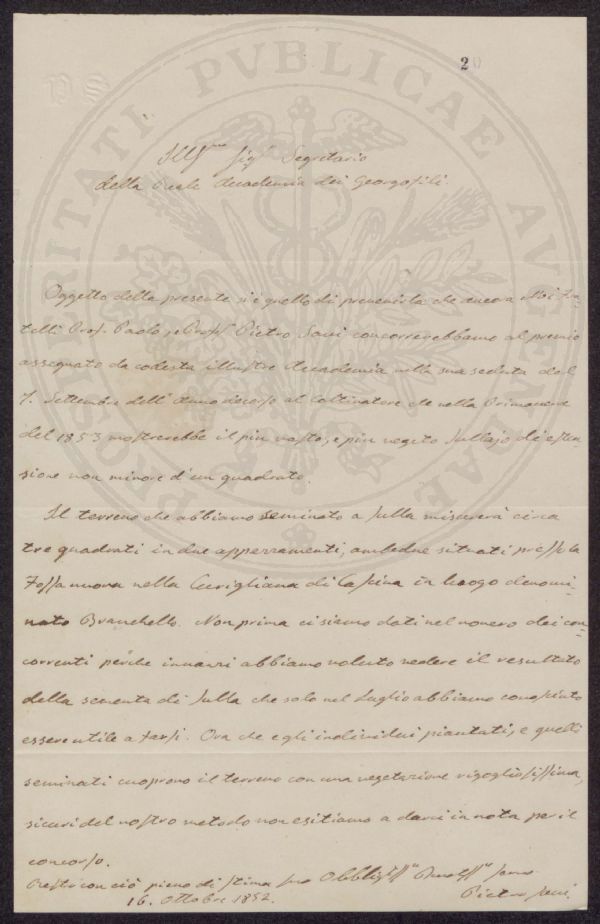 20
PROSPERITATI PVBLICAE AVGENDAE
Ill.mo Sig.r Segretario
della Reale Accademia dei Georgofili.
Oggetto della presente si è quello di prevenirla che ancora Noi fra-
telli Prof. Paolo, e Prof. Pietro Savi concorrerebbamo al premio
assegnato da codesta illustre Accademia nella sua seduta del
7. Settembre dell'Anno decorso al coltivatore che nella Primavera
del 1853 mostrerebbe il più vasto, e più vegeto Sullajo di esten-
sione non minore d'un quadrato.
Il terreno che abbiamo seminato a Sulla misurerà circa
tre quadrati in due appezzamenti, ambedue situati presso la
Fossa nuova nella di Cascina in luogo denomi-
nato Branchello. Non prima ci siamo dati nel novero dei con-
correnti perche innanzi abbiamo voluto vedere il resultato
della sementa di Sulla che solo nel Luglio abbiamo
essere utile a farsi. Ora che e gli individui piantati, e quelli
seminati cuoprono il terreno con una vegetazione rigogliosissima,
sicuri del nostro metodo non esitiamo a darci in nota per il
concorso.
Resto con ciò pieno di stima suo Obbligss.o Servo
16. Ottobre 1852. Pietro Savi.